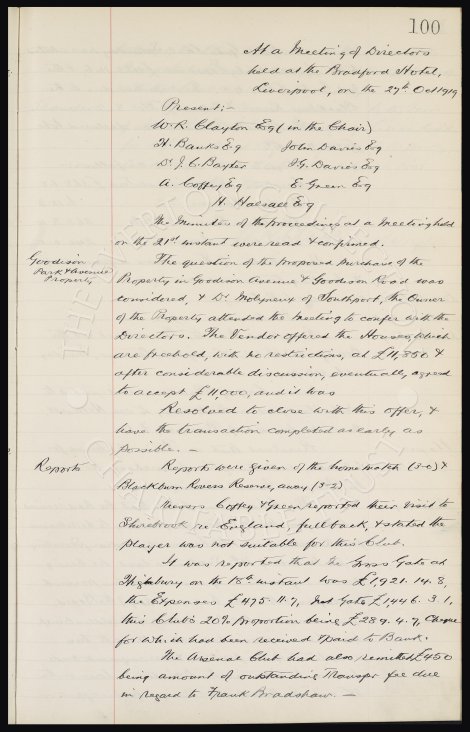 100
At a Meeting of Directors
held at the Bradford Hotel,
Liverpool, on the 27th Oct 1919
Present:-
W.R. Clayton Esq (in the Chair)
H. Banks Esq John Davies Esq
Dr. J.C. Baxter J.G. Davies Esq
A. Coffey Esq E. Green Esq
H. Halsall Esq
The Minutes of the proceedings at a Meeting held
on the 21st instant were read & confirmed.
Goodison
Park & Avenue
Property
The question of the proposed purchase of the
Property in Goodison Avenue & Goodison Road was
considered, & Dr. Molyneux of Southport, the Owner
of the Property attended the Meeting to confer with the
Directors. The Vendor offered the Houses, which
are freehold, with no restrictions, at £11,850 &
after considerable discussion, eventually, agreed
to accept £11,000, and it was
Resolved to close with this offer, &
have the transaction completed as early as
possible. -
Reports
Reports were given of the home match (3-0) &
Blackburn Rovers Reserve, away (3-2)
Messrs Coffey & Green reported their visit to
Shirebrook re England, full back, & stated the
player was not suitable for this Club.
It was reported that the Gross Gate at
Highbury on the 18th instant was £1,921. 14. 8,
the Expenses £475. 11. 7, Net Gate £1,446. 3. 1,
this Club's 20% proportion being £289. 4. 7, Cheque
for which had been received & paid to Bank.
The Arsenal Club had also remitted £450
being amount of outstanding Transfer fee due
in regard to Frank Bradshaw. -